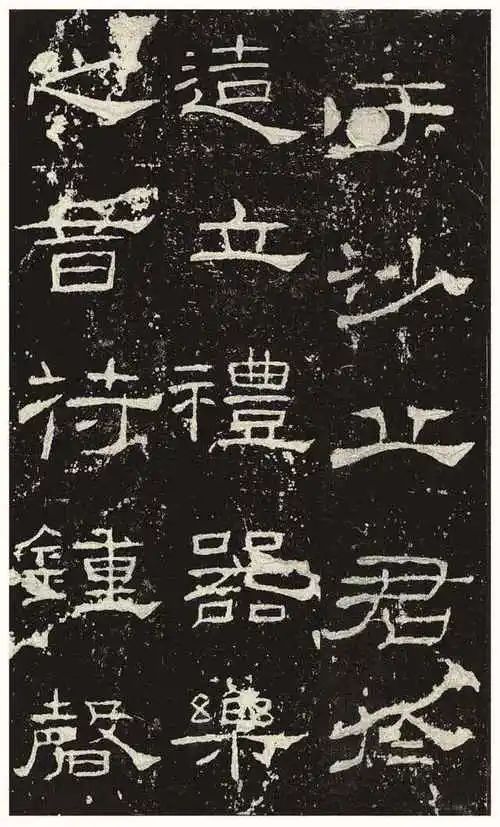 于沙丘君於
造立禮器樂
之音符鍾磬